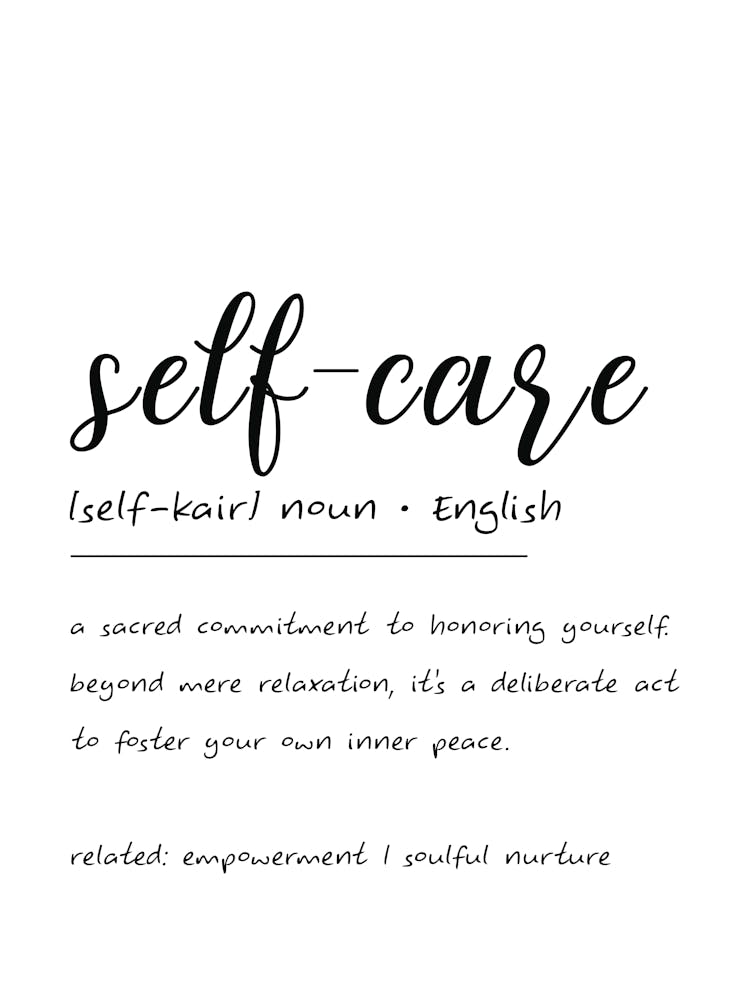 self-care
[self-kair] noun • English
a sacred commitment to honoring yourself.
beyond mere relaxation, it's a deliberate act
to foster your own inner peace.
related: empowerment | soulful nurture